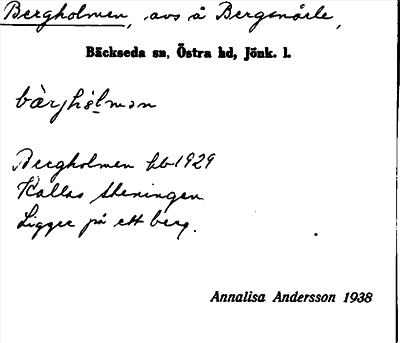 Bergholmen, avs å Bergsnärle,
Bäckseda sn, Östra hd, Jönk. l.
bærjhòlmən
Bergholmen kb 1929
Kallas Steningen
Ligger på ett berg.
Annalisa Andersson 1938